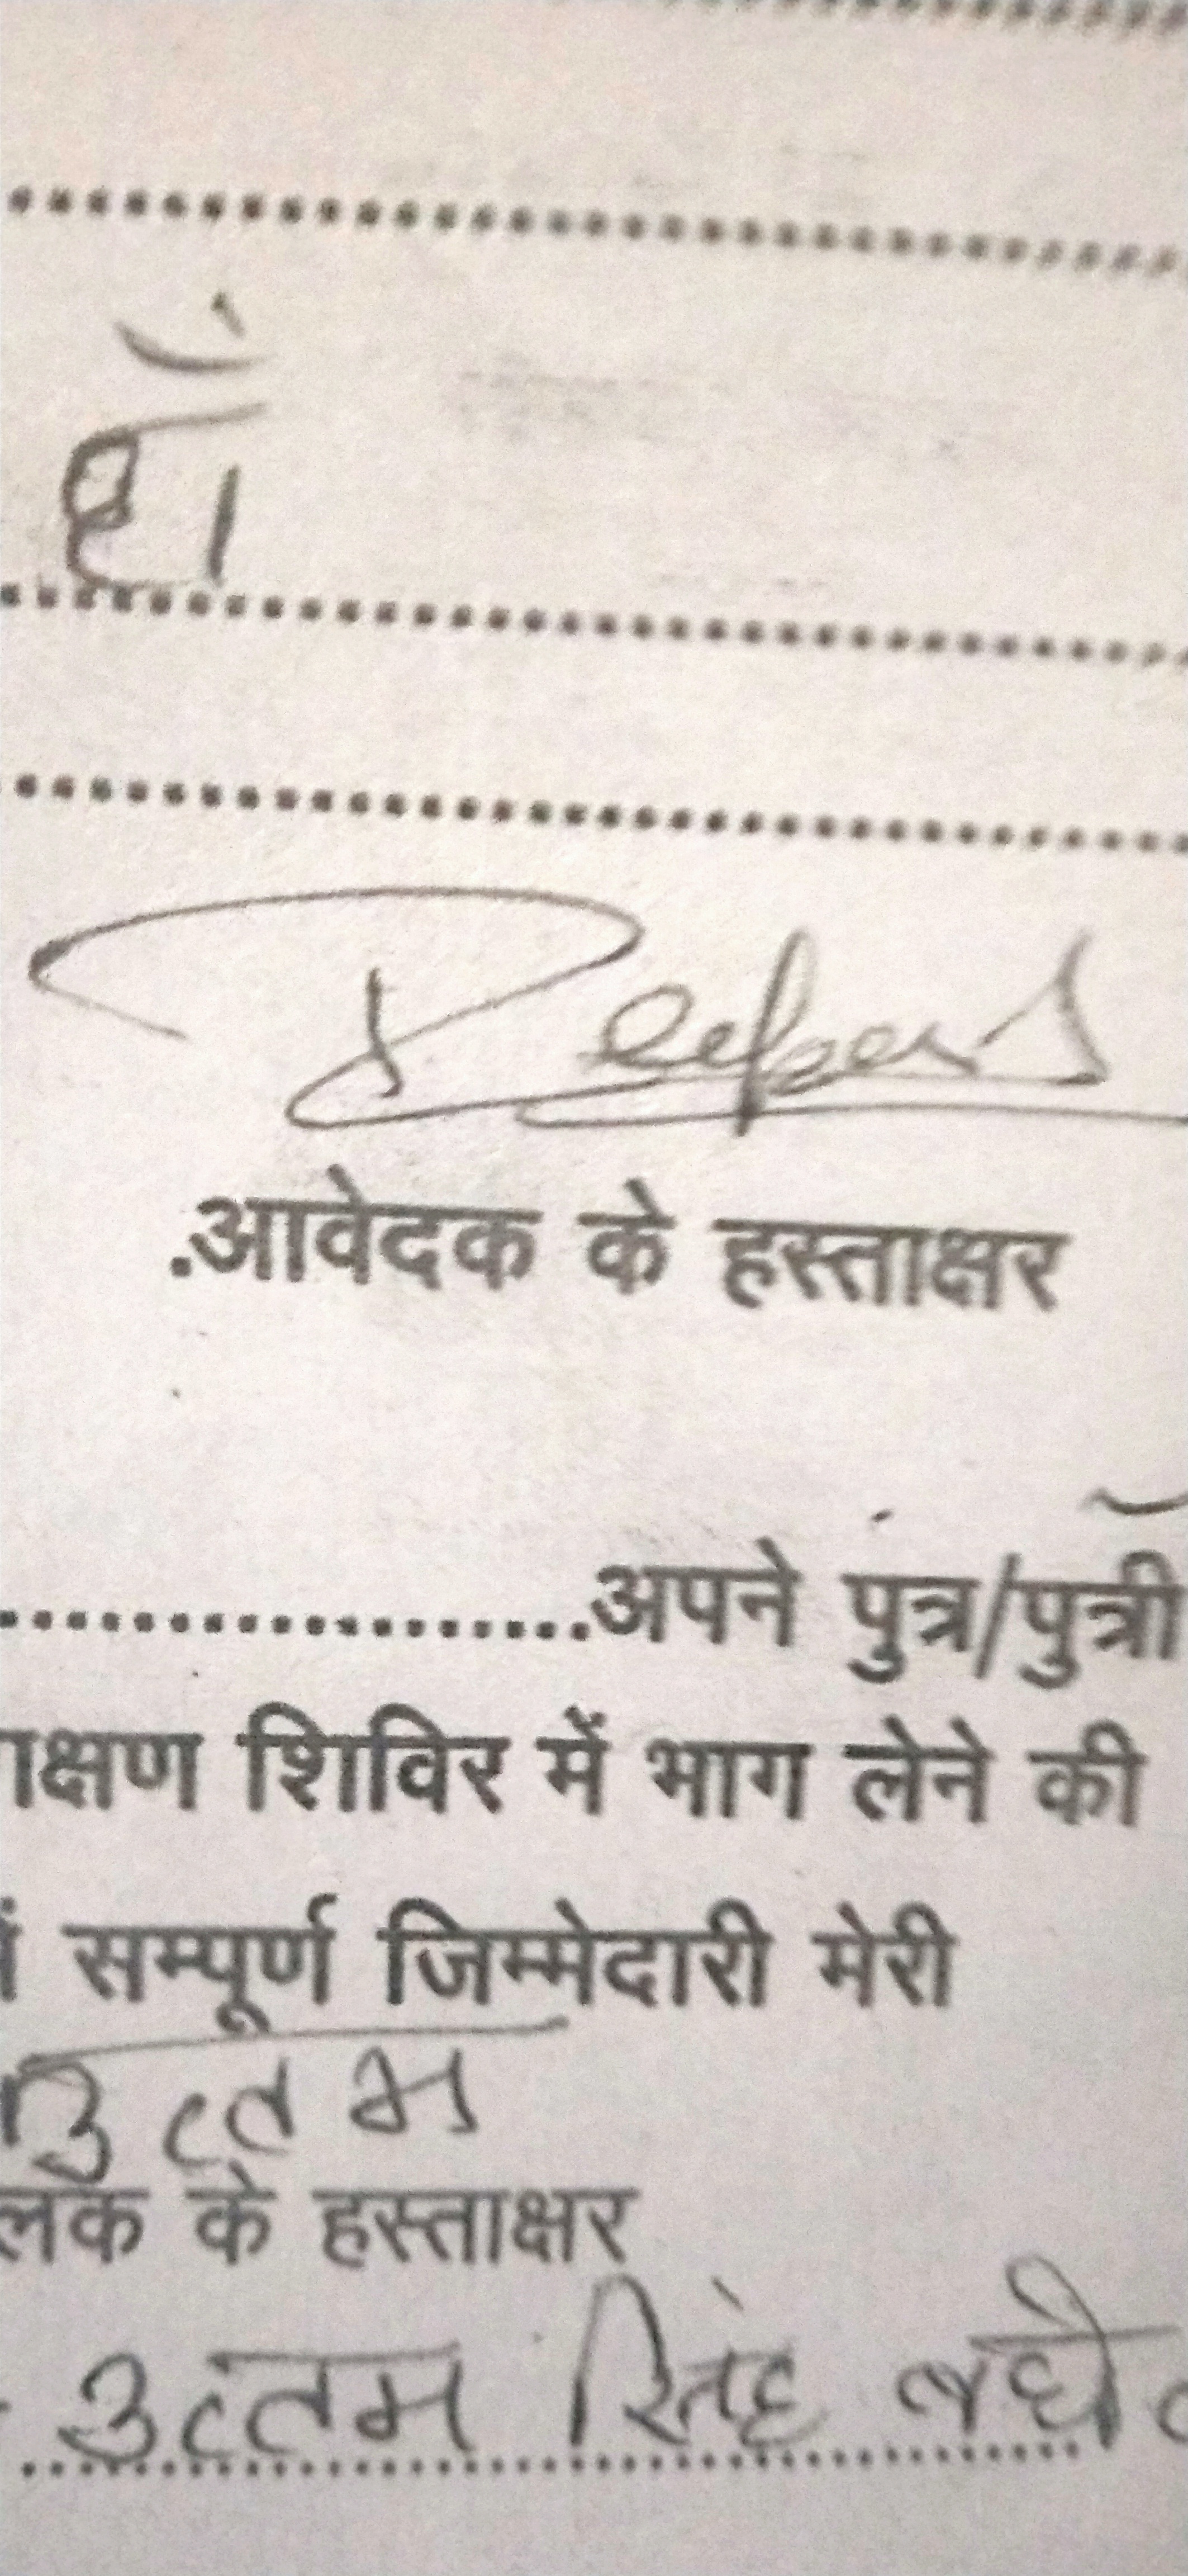 हाँ
.आवेदक के हस्ताक्षर
अपने पुत्र/पुत्री
क्षण शिविर में भाग लेने की
सम्पूर्ण जिम्मेदारी मेरी
उत्तम
लक के हस्ताक्षर
उत्तम सिंह बघे